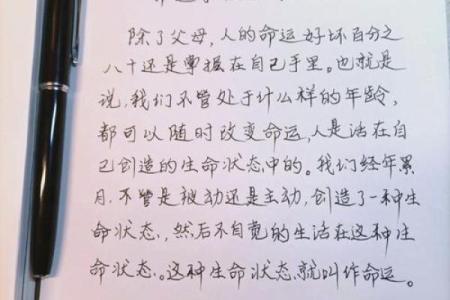 除了父母,人的命运好坏百分之
八十还是掌握在自己手里。也就是
说,我们不管处于什么样的年龄,
都可以随时改变命运,人是活在自
己创造的生命状态中的。我们经年累
月,不管是被动还是主动,创造了一种生
命状态,然后不自觉的生活在这种生
命状态。这种生命状态就叫作命运。